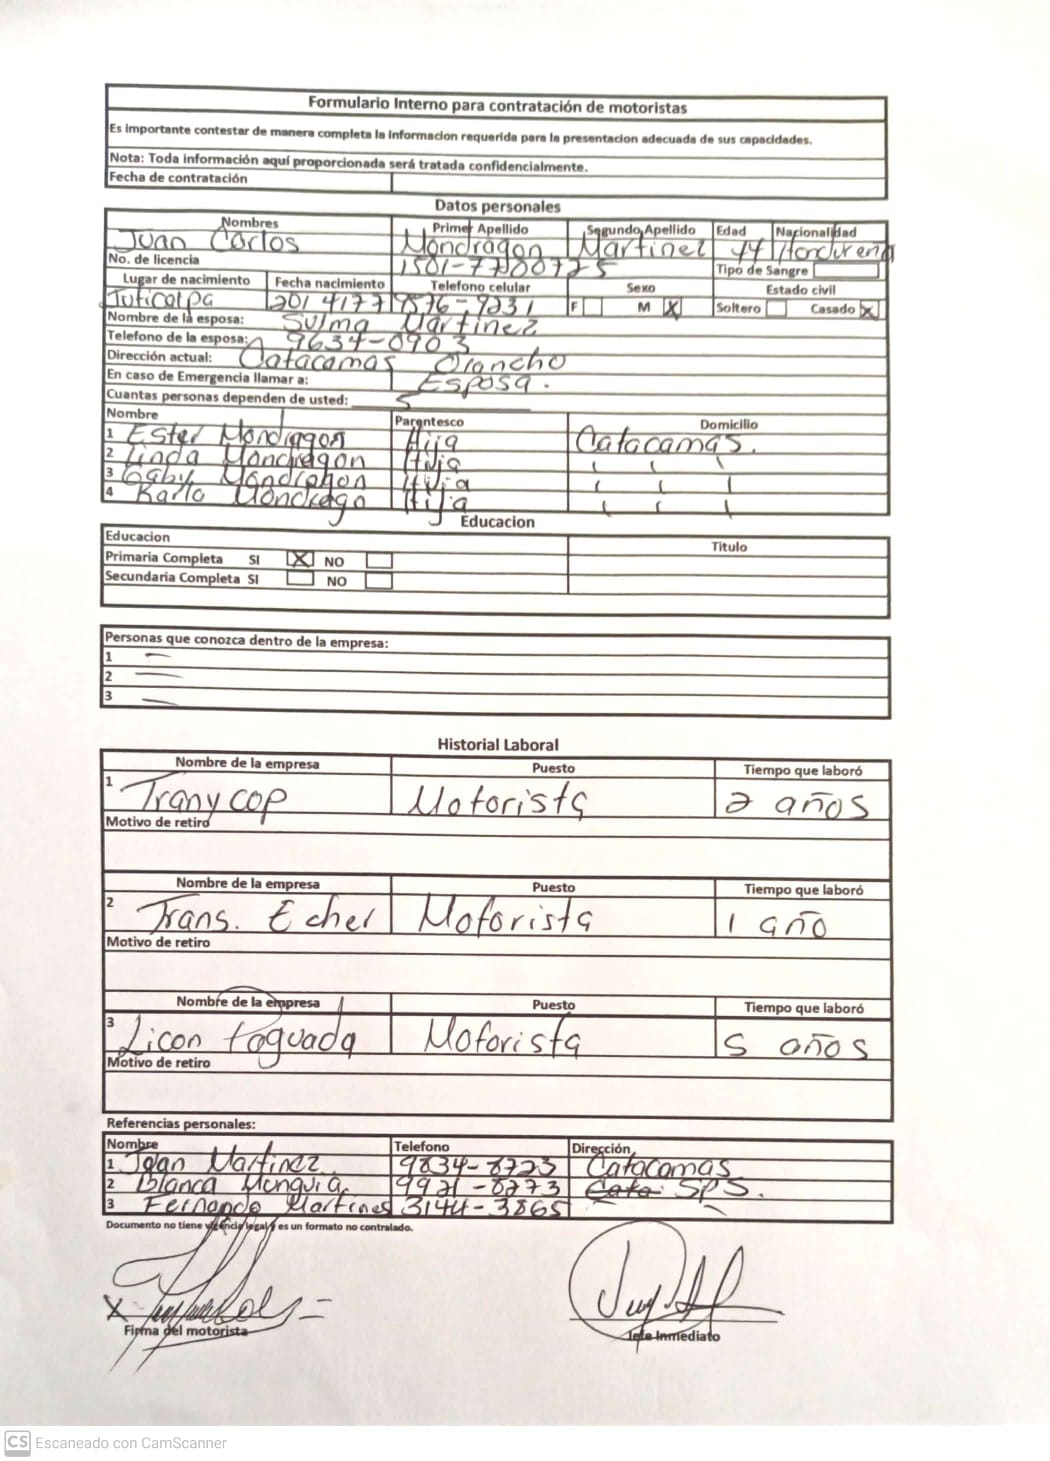 Formulario Interno para contratación de motoristas
Es importante contestar de manera completa la informacion requerida para la presentacion adecuada de sus capacidades.
Nota: Toda información aquí proporcionada será tratada confidencialmente.
Fecha de contratación
Datos personales
Nombres Primer Apellido Segundo Apellido Edad Nacionalidad
Juan Carlos Mondragon Martinez 44 Hondureña
No. de licencia 1501-7700725 Tipo de Sangre
Lugar de nacimiento Fecha nacimiento Telefono celular Sexo Estado civil
Juticalpa 9876-9231 F M X Soltero Casado X
Nombre de la esposa: Sulma Martinez
Telefono de la esposa: 9634-0903
Dirección actual: Catacamas Olancho
En caso de Emergencia llamar a: Esposa.
Cuantas personas dependen de usted: 5
Nombre Parentesco Domicilio
1 Ester Mondragon Hija Catacamas.
2 Linda Mondragon Hija
3 Gaby Mondragon Hija
4 Karlo Mondrago Hija
Educacion
Educacion Titulo
Primaria Completa SI X NO
Secundaria Completa SI NO
Personas que conozca dentro de la empresa:
1 —
2 —
3 —
Historial Laboral
Nombre de la empresa Puesto Tiempo que laboró
1 Tranycop Motorista 2 años
Motivo de retiro
Nombre de la empresa Puesto Tiempo que laboró
2 Trans. Echer Motorista 1 año
Motivo de retiro
Nombre de la empresa Puesto Tiempo que laboró
3 Licon Motorista 5 años
Motivo de retiro
Referencias personales:
Nombre Telefono Dirección
1 Joan Martinez 9834-8723 Catacamas
2 Blanca Munguia. 9921-8773 Cata SPS.
3 Fernando Martines 3144-3865
Documento no tiene vigencia legal y es un formato no contralado.
X
Firma del motorista Jefe Inmediato
CS Escaneado con CamScanner